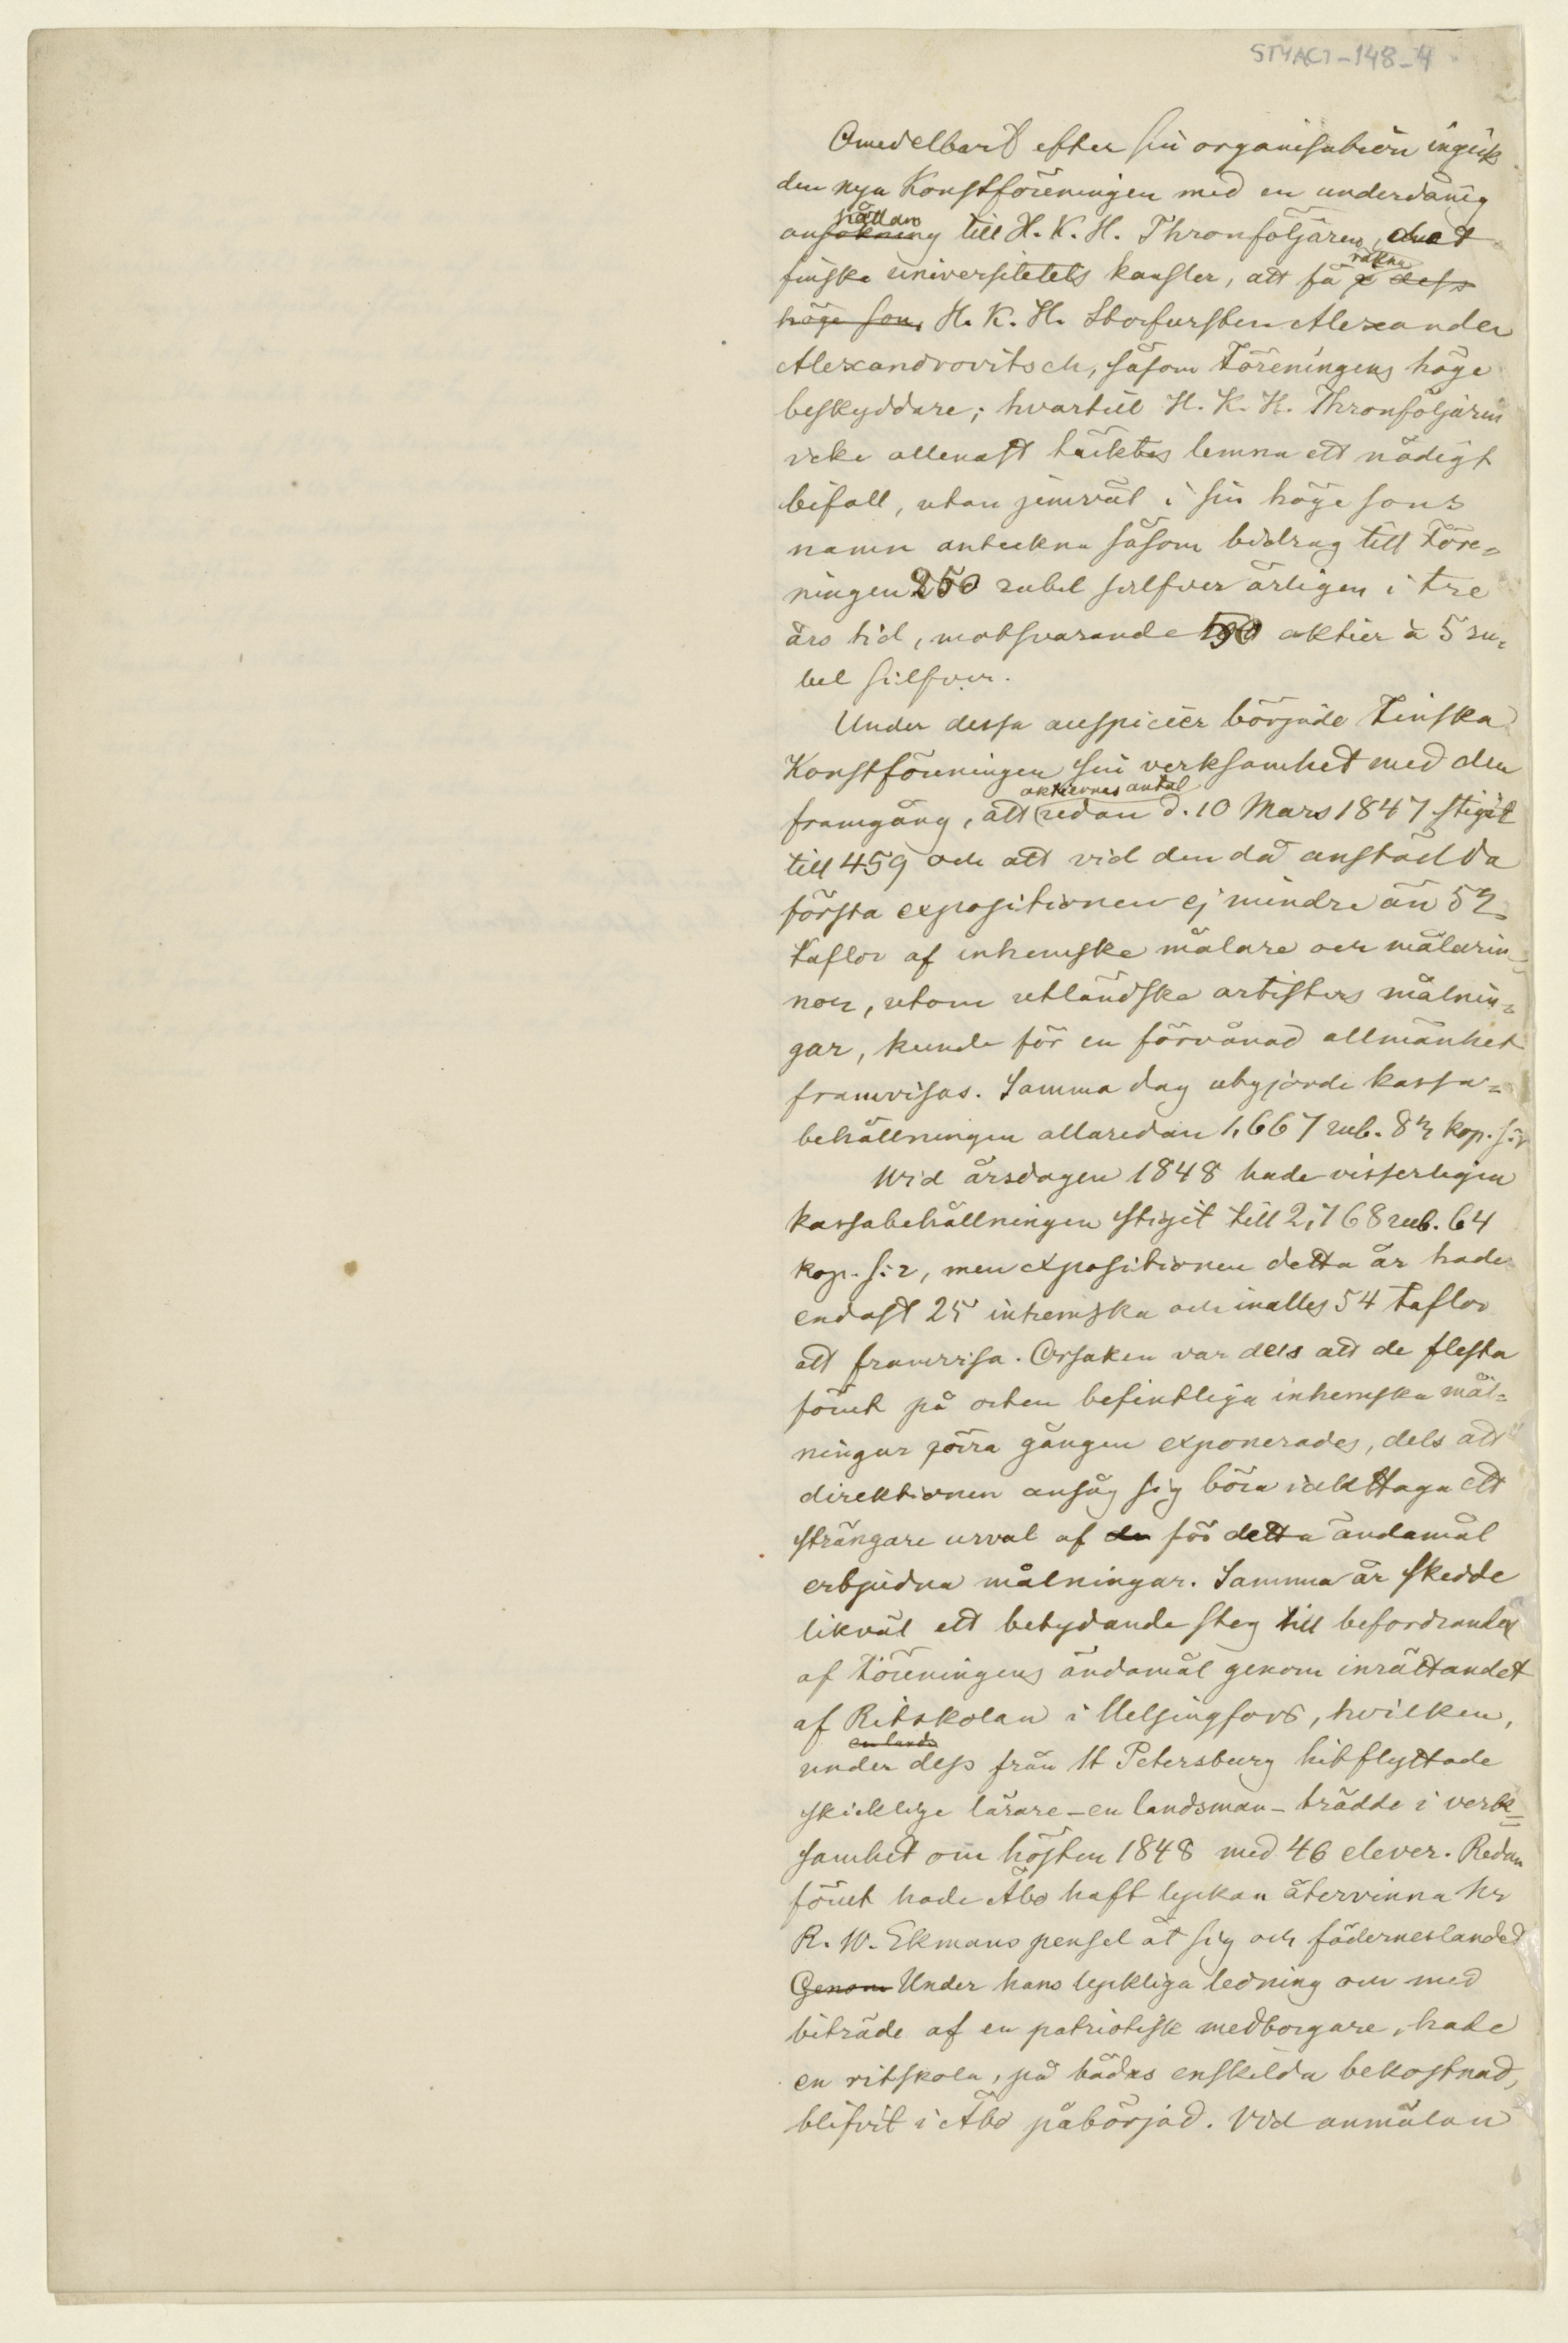 STYACI-148-4
Omedelbart efter sin organisation ingick
den nya Konstföreningen med en underdånig
hållan
ansökning till H. K. H. Thronföljaren,
finska universitetets kansler, att få dess
räkna
höge son, H. K. H. Storfursten Alexander
Alexandrovitsch, såsom Föreningens höge
beskyddare; hvartill H. K. H. Thronföljaren
icke allenast täcktes lemna ett nådigt
bifall, utan jemväl i sin höge sons
namn anteckna såsom bidrag till Före=
ningen 250 rubel silfver årligen i tre
års tid, motsvarande 50 aktier à 5 ru=
bel silfver.
Under dessa auspicier började Finska
Konstföreningen sin verksamhet med den
aktiernas antal
framgång, att redan d. 10 Mars 1847 stigit
till 459 och att vid den då anstälda
första expositionen ej mindre än 52
taflor af inhemske målare och målarin=
nor, utom utländske artisters målnin=
gar, kunde för en förvånad allmänhet
framvisas. Samma dag utgjorde kassa=
behållningen allaredan 1,667 rub. 82 kop. s:r
Vid årsdagen 1848 hade visserligen
kassabehållningen stigit till 2,768 rub. 64
kop. s:r, men expositionen detta år hade
endast 25 inhemska och inalles 54 taflor
att framvisa. Orsaken var dels att de flesta
förut på orten befintliga inhemska mål=
ningar förra gången exponerades, dels att
direktionen ansåg sig böra iakttaga ett
strängare urval af de för detta ändamål
erbjudna målningar. Samma år skedde
likväl ett betydande steg till befordrandet
af Föreningens ändamål genom inrättandet
af Ritskolan i Helsingfors, hvilken,
en lands
under dess från St Petersburg hitflyttade
skicklige lärare - en landsman - trädde i verk=
samhet om hösten 1848 med 46 elever. Redan
förut hade Åbo haft lyckan återvinna hr
R. W. Ekmans pensel åt sig och fäderneslandet
Genom Under hans lyckliga ledning och med
biträde af en patriotisk medborgare, hade
en ritskola, på bådas enskilda bekostnad,
blifvit i Åbo påbörjad. Vid anmälan